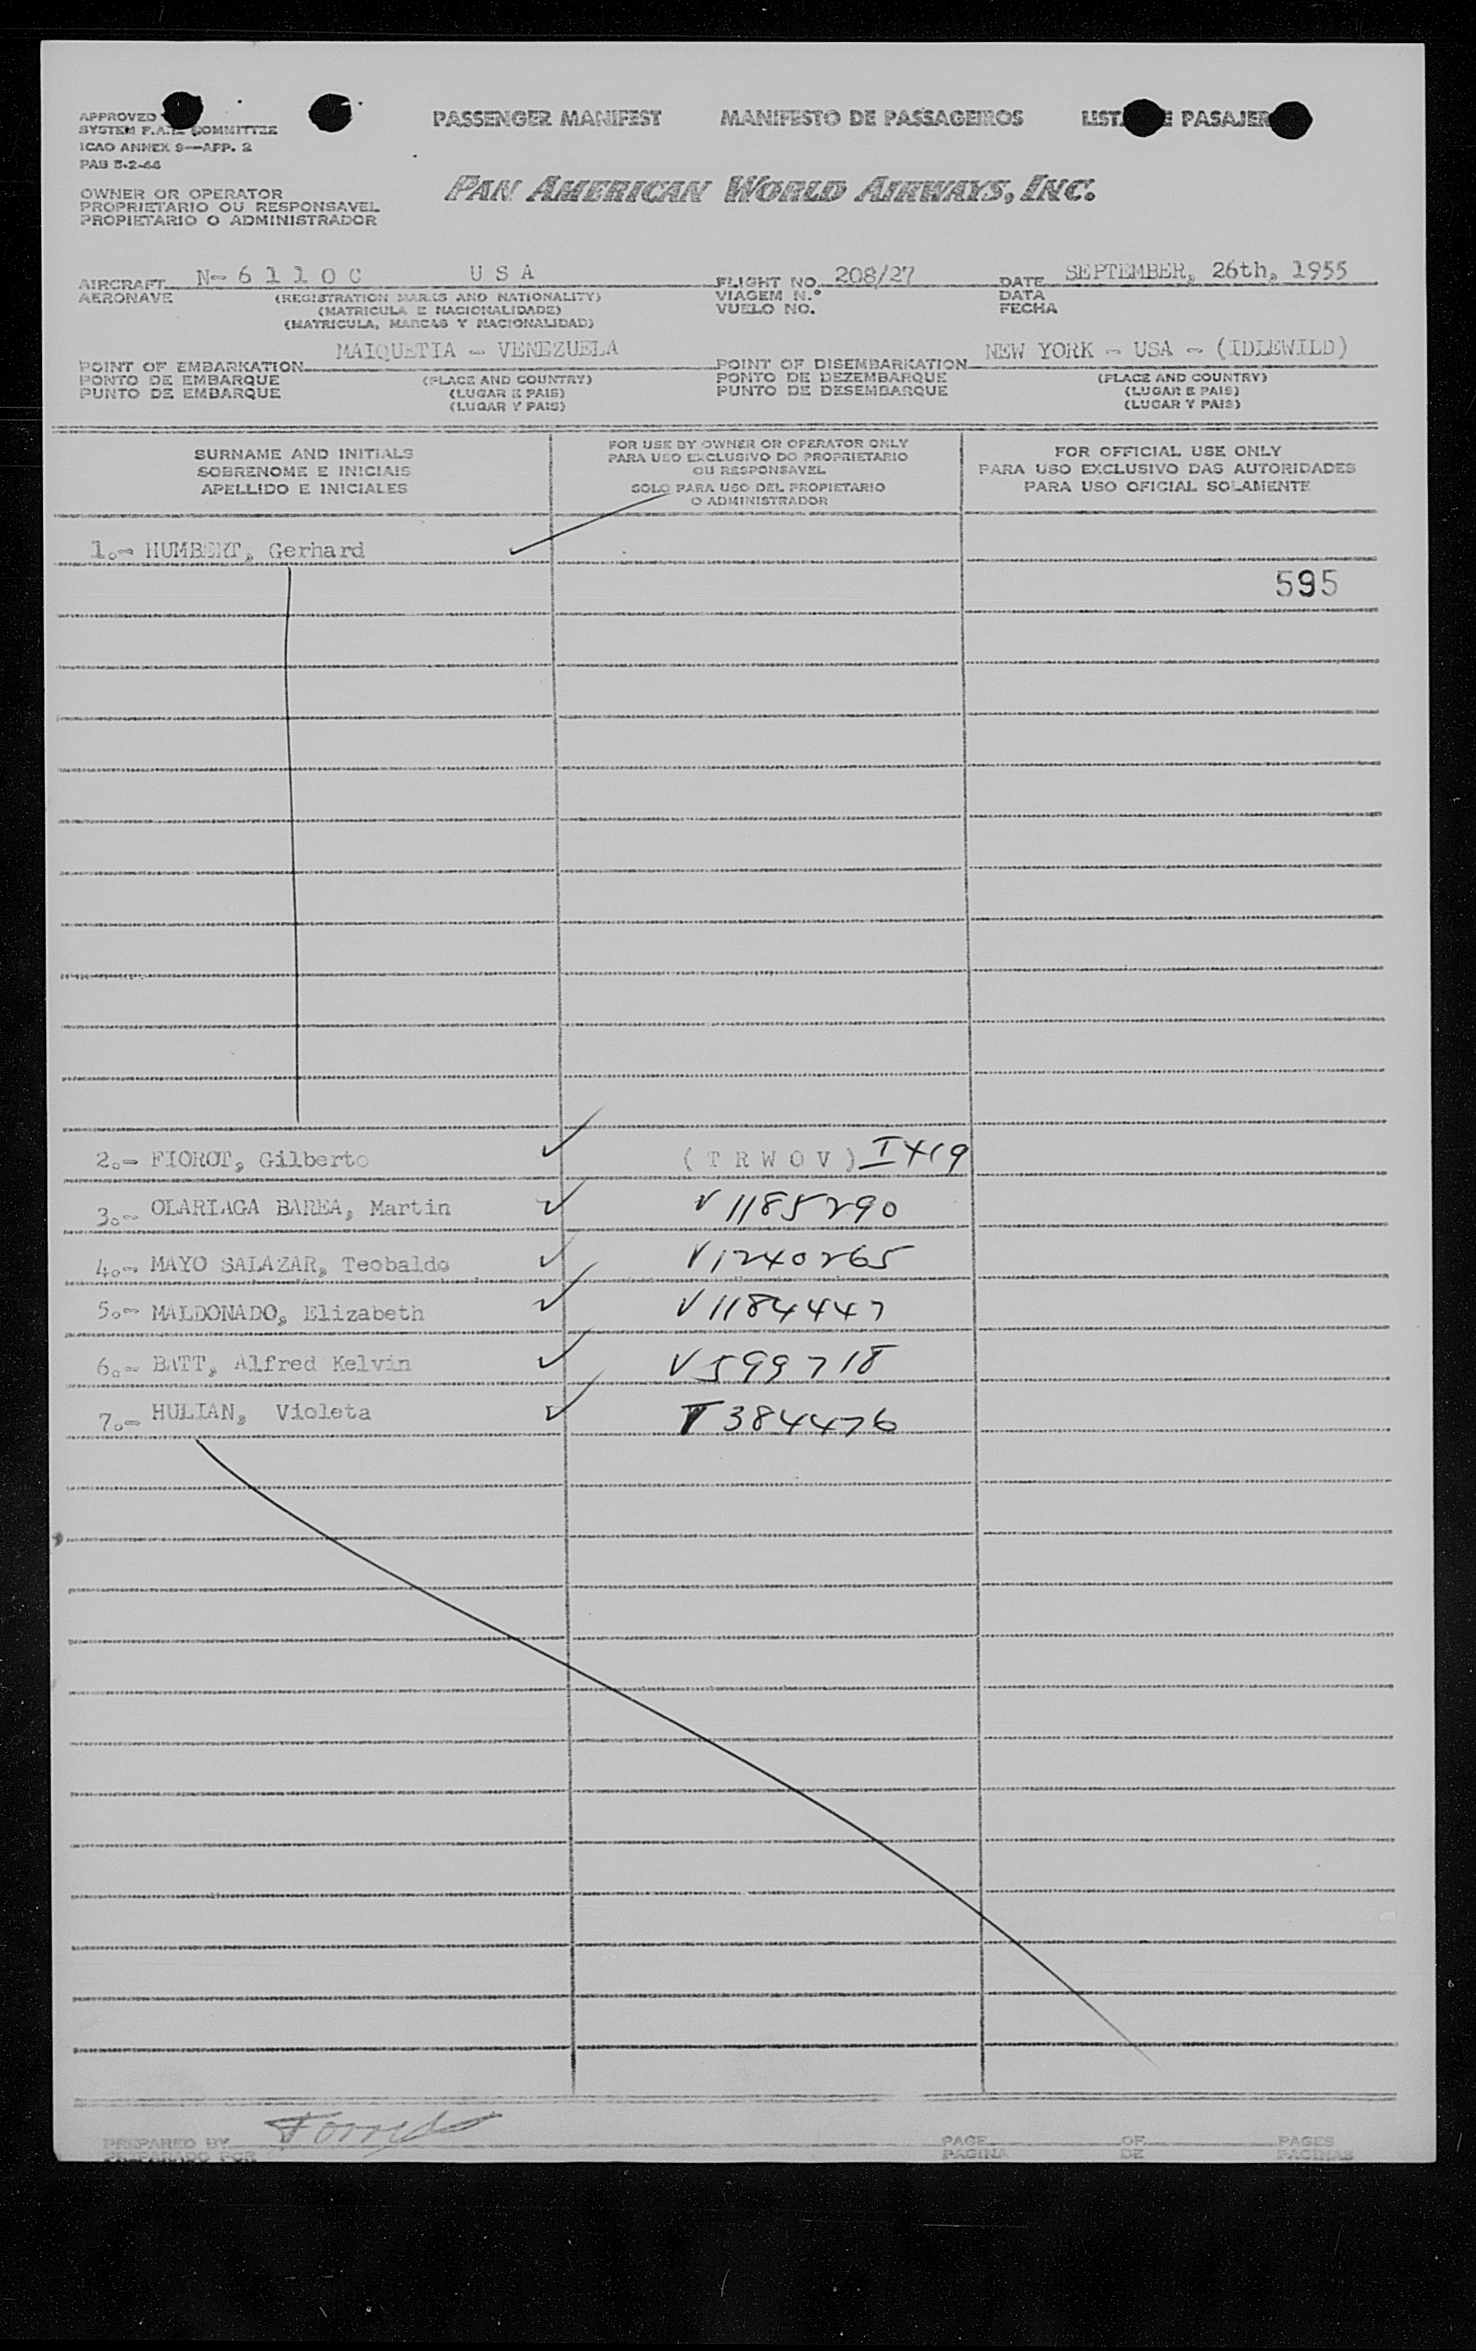 APPROVED
SYSTEM F.A.L. COMMITTEE
ICAO ANNEX 9—APP. 2
PAB 5-2-44
PASSENGER MANIFEST MANIFESTO DE PASSAGEIROS LISTA DE PASAJEROS
OWNER OR OPERATOR
PROPRIETARIO OU RESPONSAVEL
PROPIETARIO O ADMINISTRADOR
PAN AMERICAN WORLD AIRWAYS, INC.
AIRCRAFT N-6 1 1 0 C U S A FLIGHT NO. 208/27 DATE SEPTEMBER, 26th, 1955
AERONAVE (REGISTRATION MARKS AND NATIONALITY) VIAGEM N.° DATA
(MATRICULA E NACIONALIDADE) VUELO NO. FECHA
(MATRICULA, MARCAS Y NACIONALIDAD)
POINT OF EMBARKATION MAIQUETIA - VENEZUELA POINT OF DISEMBARKATION NEW YORK - USA - (IDLEWILD)
PONTO DE EMBARQUE (PLACE AND COUNTRY) PONTO DE DEZEMBARQUE (PLACE AND COUNTRY)
PUNTO DE EMBARQUE (LUGAR E PAIS) PUNTO DE DESEMBARQUE (LUGAR E PAIS)
(LUGAR Y PAIS) (LUGAR Y PAIS)
SURNAME AND INITIALS
SOBRENOME E INICIAIS
APELLIDO E INICIALES
FOR USE BY OWNER OR OPERATOR ONLY
PARA USO EXCLUSIVO DO PROPRIETARIO
OU RESPONSAVEL
SOLO PARA USO DEL PROPIETARIO
O ADMINISTRADOR
FOR OFFICIAL USE ONLY
PARA USO EXCLUSIVO DAS AUTORIDADES
PARA USO OFICIAL SOLAMENTE
1.- HUMBERT, Gerhard
595
2.- FIOROT, Gilberto (T R W O V) I 419
3.- OLARIAGA BAREA, Martin V 1185290
4.- MAYO SALAZAR, Teobaldo V 1240265
5.- MALDONADO, Elizabeth V 1184447
6.- BATT, Alfred Kelvin V 599718
7.- HULIAN, Violeta T 384476
PREPARED BY PAGE OF PAGES
PREPARADO POR PAGINA DE PAGINAS